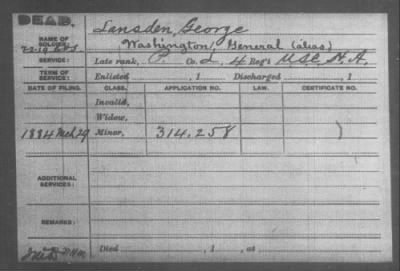 DEAD.
NAME OF SOLDIER: Lansden, George
Washington, General (alias)
SERVICE: Late rank, P. Co. L, 4 Reg't U.S.C. H. A.
TERM OF SERVICE: Enlisted , 1 Discharged , 1
DATE OF FILING. CLASS. APPLICATION NO. LAW. CERTIFICATE NO.
Invalid,
Widow,
1884 Mch 29 Minor, 314.258
ADDITIONAL SERVICES:
REMARKS:
Died , 1 , at